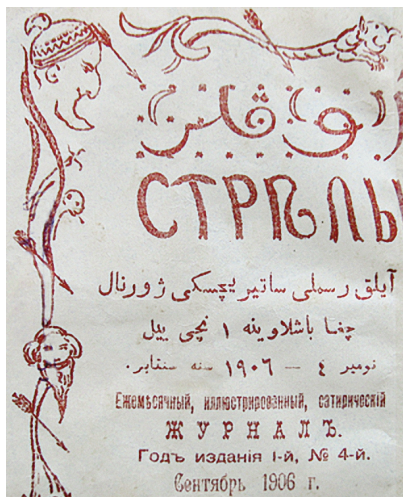 اوقلر
СТРѢЛЫ
آیلق رسملی ساتیریچسکی ژورنال
چغا باشلاوینه ١ نچی ییل
نومیر ٤ — ١٩٠٦ سنه سنتابر.
Ежемѣсячный, иллюстрированный, сатирическій
ЖУРНАЛЪ.
Годъ изданія I-й, № 4-й.
Сентябрь 1906 г.